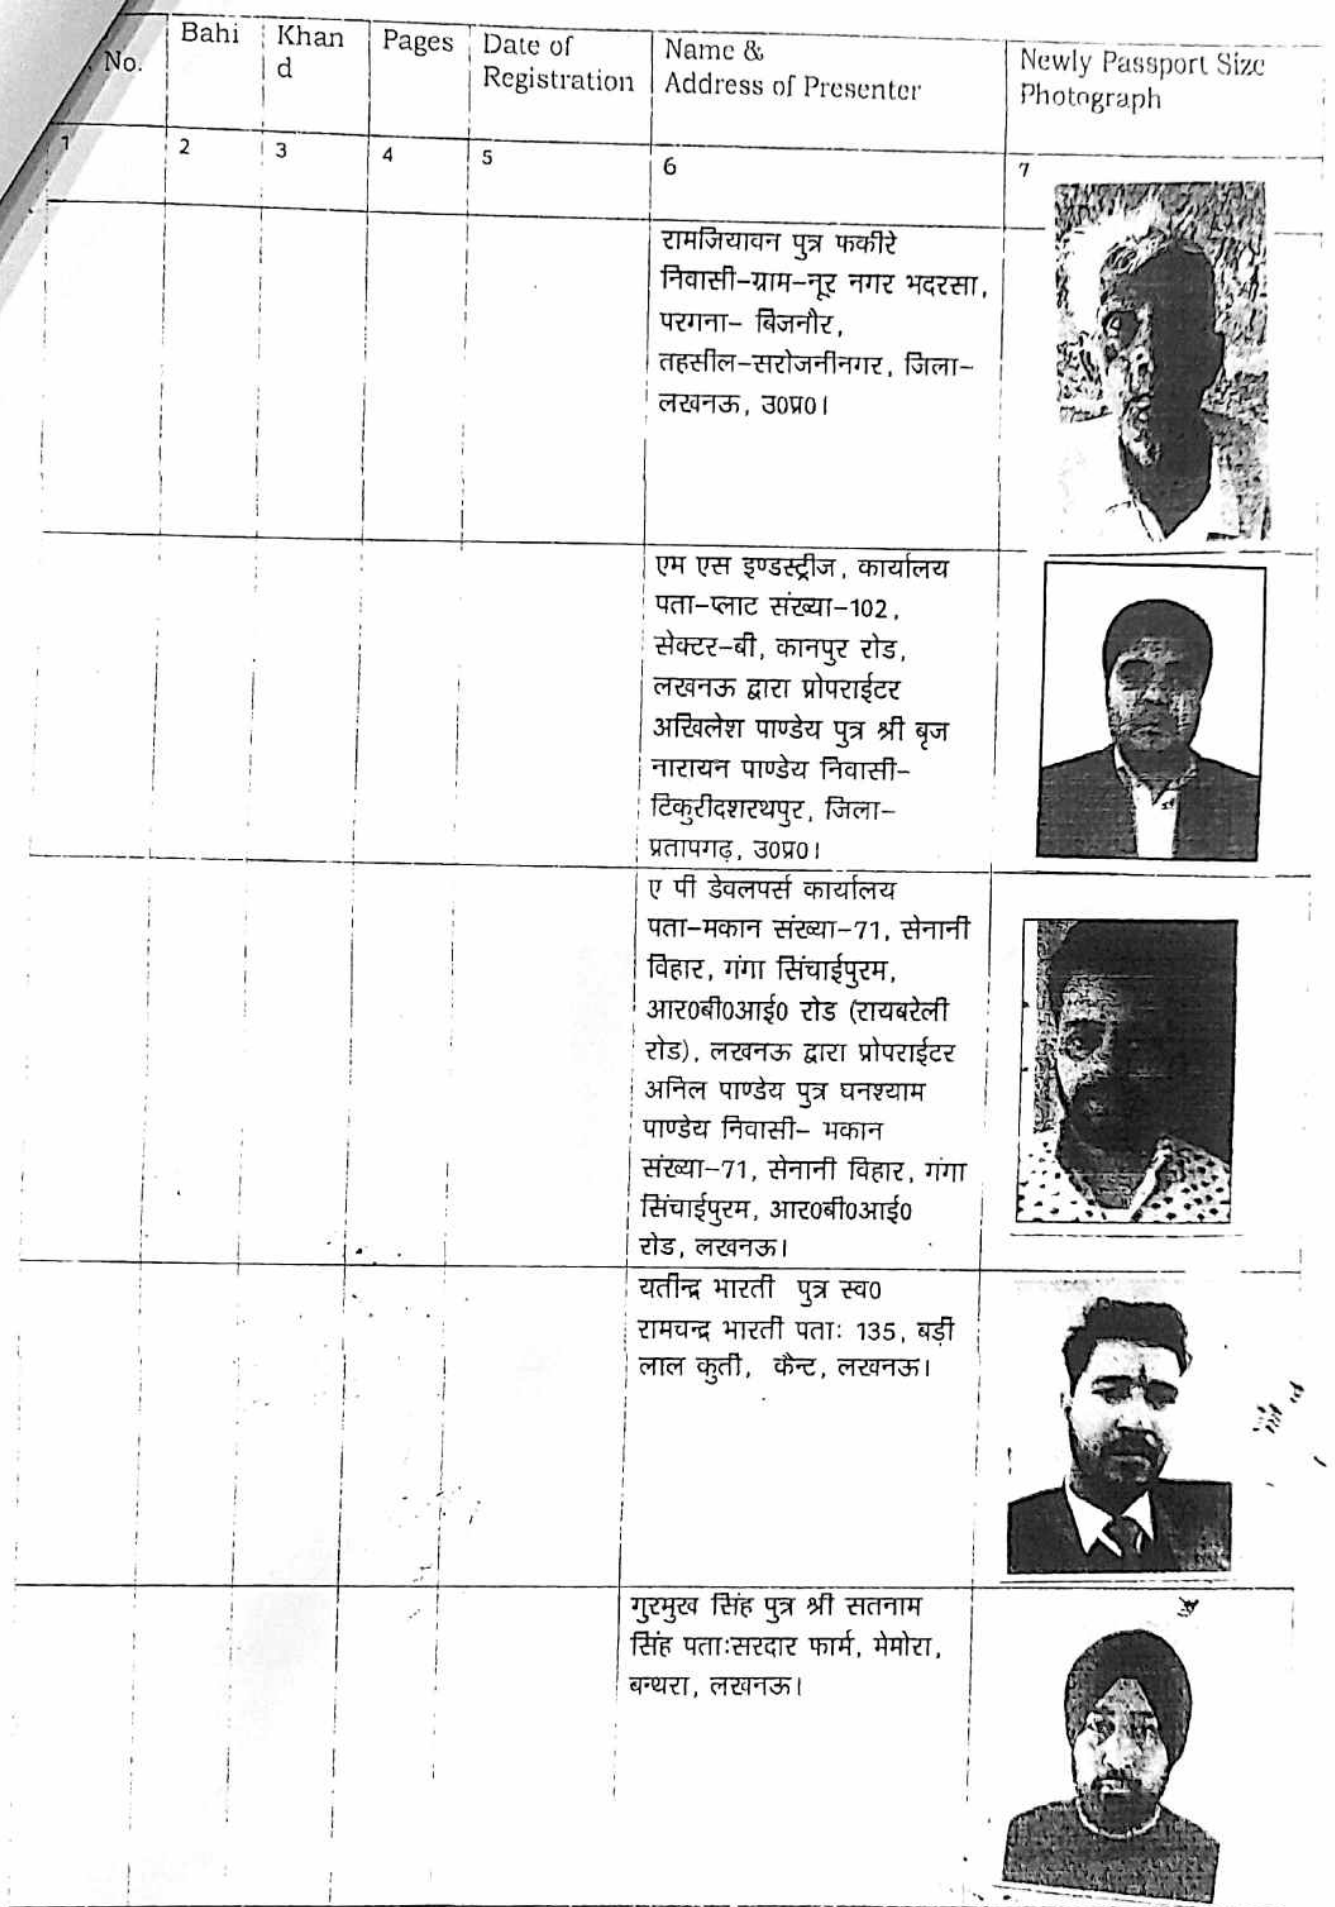 No.
Bahi
Khan
d
Pages
Date of
Registration
Name &
Address of Presenter
Newly Passport Size
Photograph
1
2
3
4
5
6
7
रामजियावन पुत्र फकीरे
निवासी-ग्राम-नूर नगर भदरसा,
परगना- बिजनौर,
तहसील-सरोजनीनगर, जिला-
लखनऊ, उ0प्र0।
एम एस इण्डस्ट्रीज, कार्यालय
पता-प्लाट संख्या-102,
सेक्टर-बी, कानपुर रोड,
लखनऊ द्वारा प्रोपराईटर
अखिलेश पाण्डेय पुत्र श्री बृज
नारायन पाण्डेय निवासी-
टिकुरीदशरथपुर, जिला-
प्रतापगढ़, उ0प्र0।
ए पी डेवलपर्स कार्यालय
पता-मकान संख्या-71, सेनानी
विहार, गंगा सिंचाईपुरम,
आर0बी0आई0 रोड (रायबरेली
रोड), लखनऊ द्वारा प्रोपराईटर
अनिल पाण्डेय पुत्र घनश्याम
पाण्डेय निवासी- मकान
संख्या-71, सेनानी विहार, गंगा
सिंचाईपुरम, आर0बी0आई0
रोड, लखनऊ।
यतीन्द्र भारती पुत्र स्व0
रामचन्द्र भारती पताः 135, बड़ी
लाल कुर्ती, कैन्ट, लखनऊ।
गुरमुख सिंह पुत्र श्री सतनाम
सिंह पताःसरदार फार्म, मेमोरा,
बन्थरा, लखनऊ।